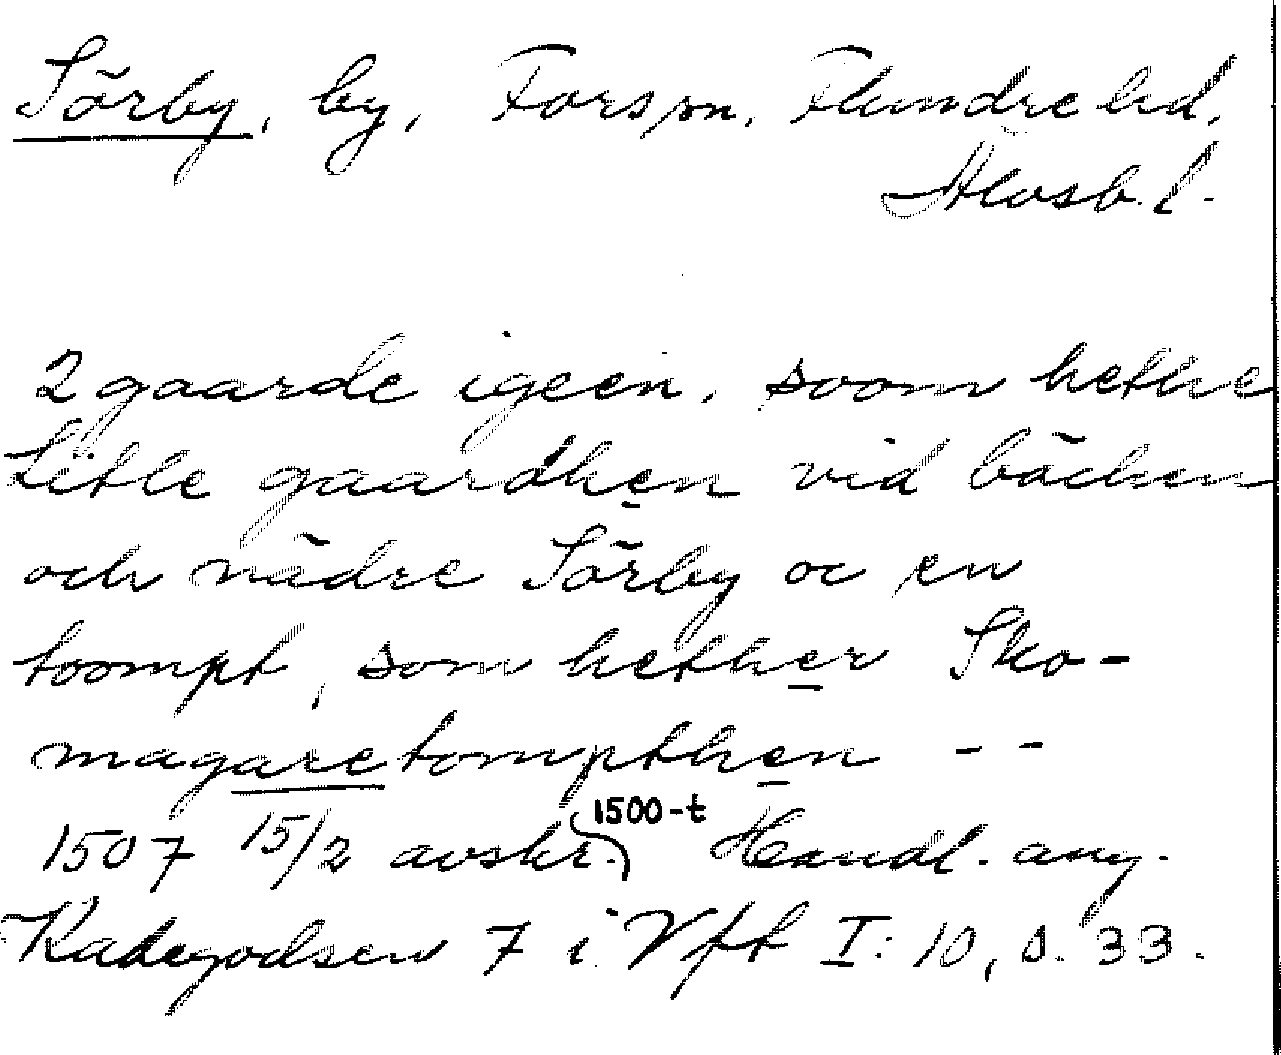 Sörby, by, Fors sn. Flundre hd.
Älvsb. l.
2 gaarde igeen, soom hethe
Litle gaardhen vid bäcken
och nädre Sörby oc en
toompt, som hether Sko-
magaretompthen - -
1500-t
1507 15/2 avskr. Handl. ang.
Kadegodsen 7 i Vft I: 10, s. 33.